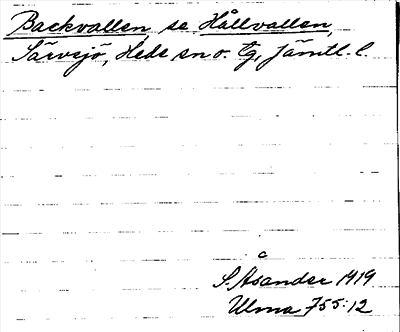 Backvallen, se Hållvallen,
Särvsjö, Heds sn o. tg, Jämtl. l.
c
S. Åsander 1919
Ulma 755:12